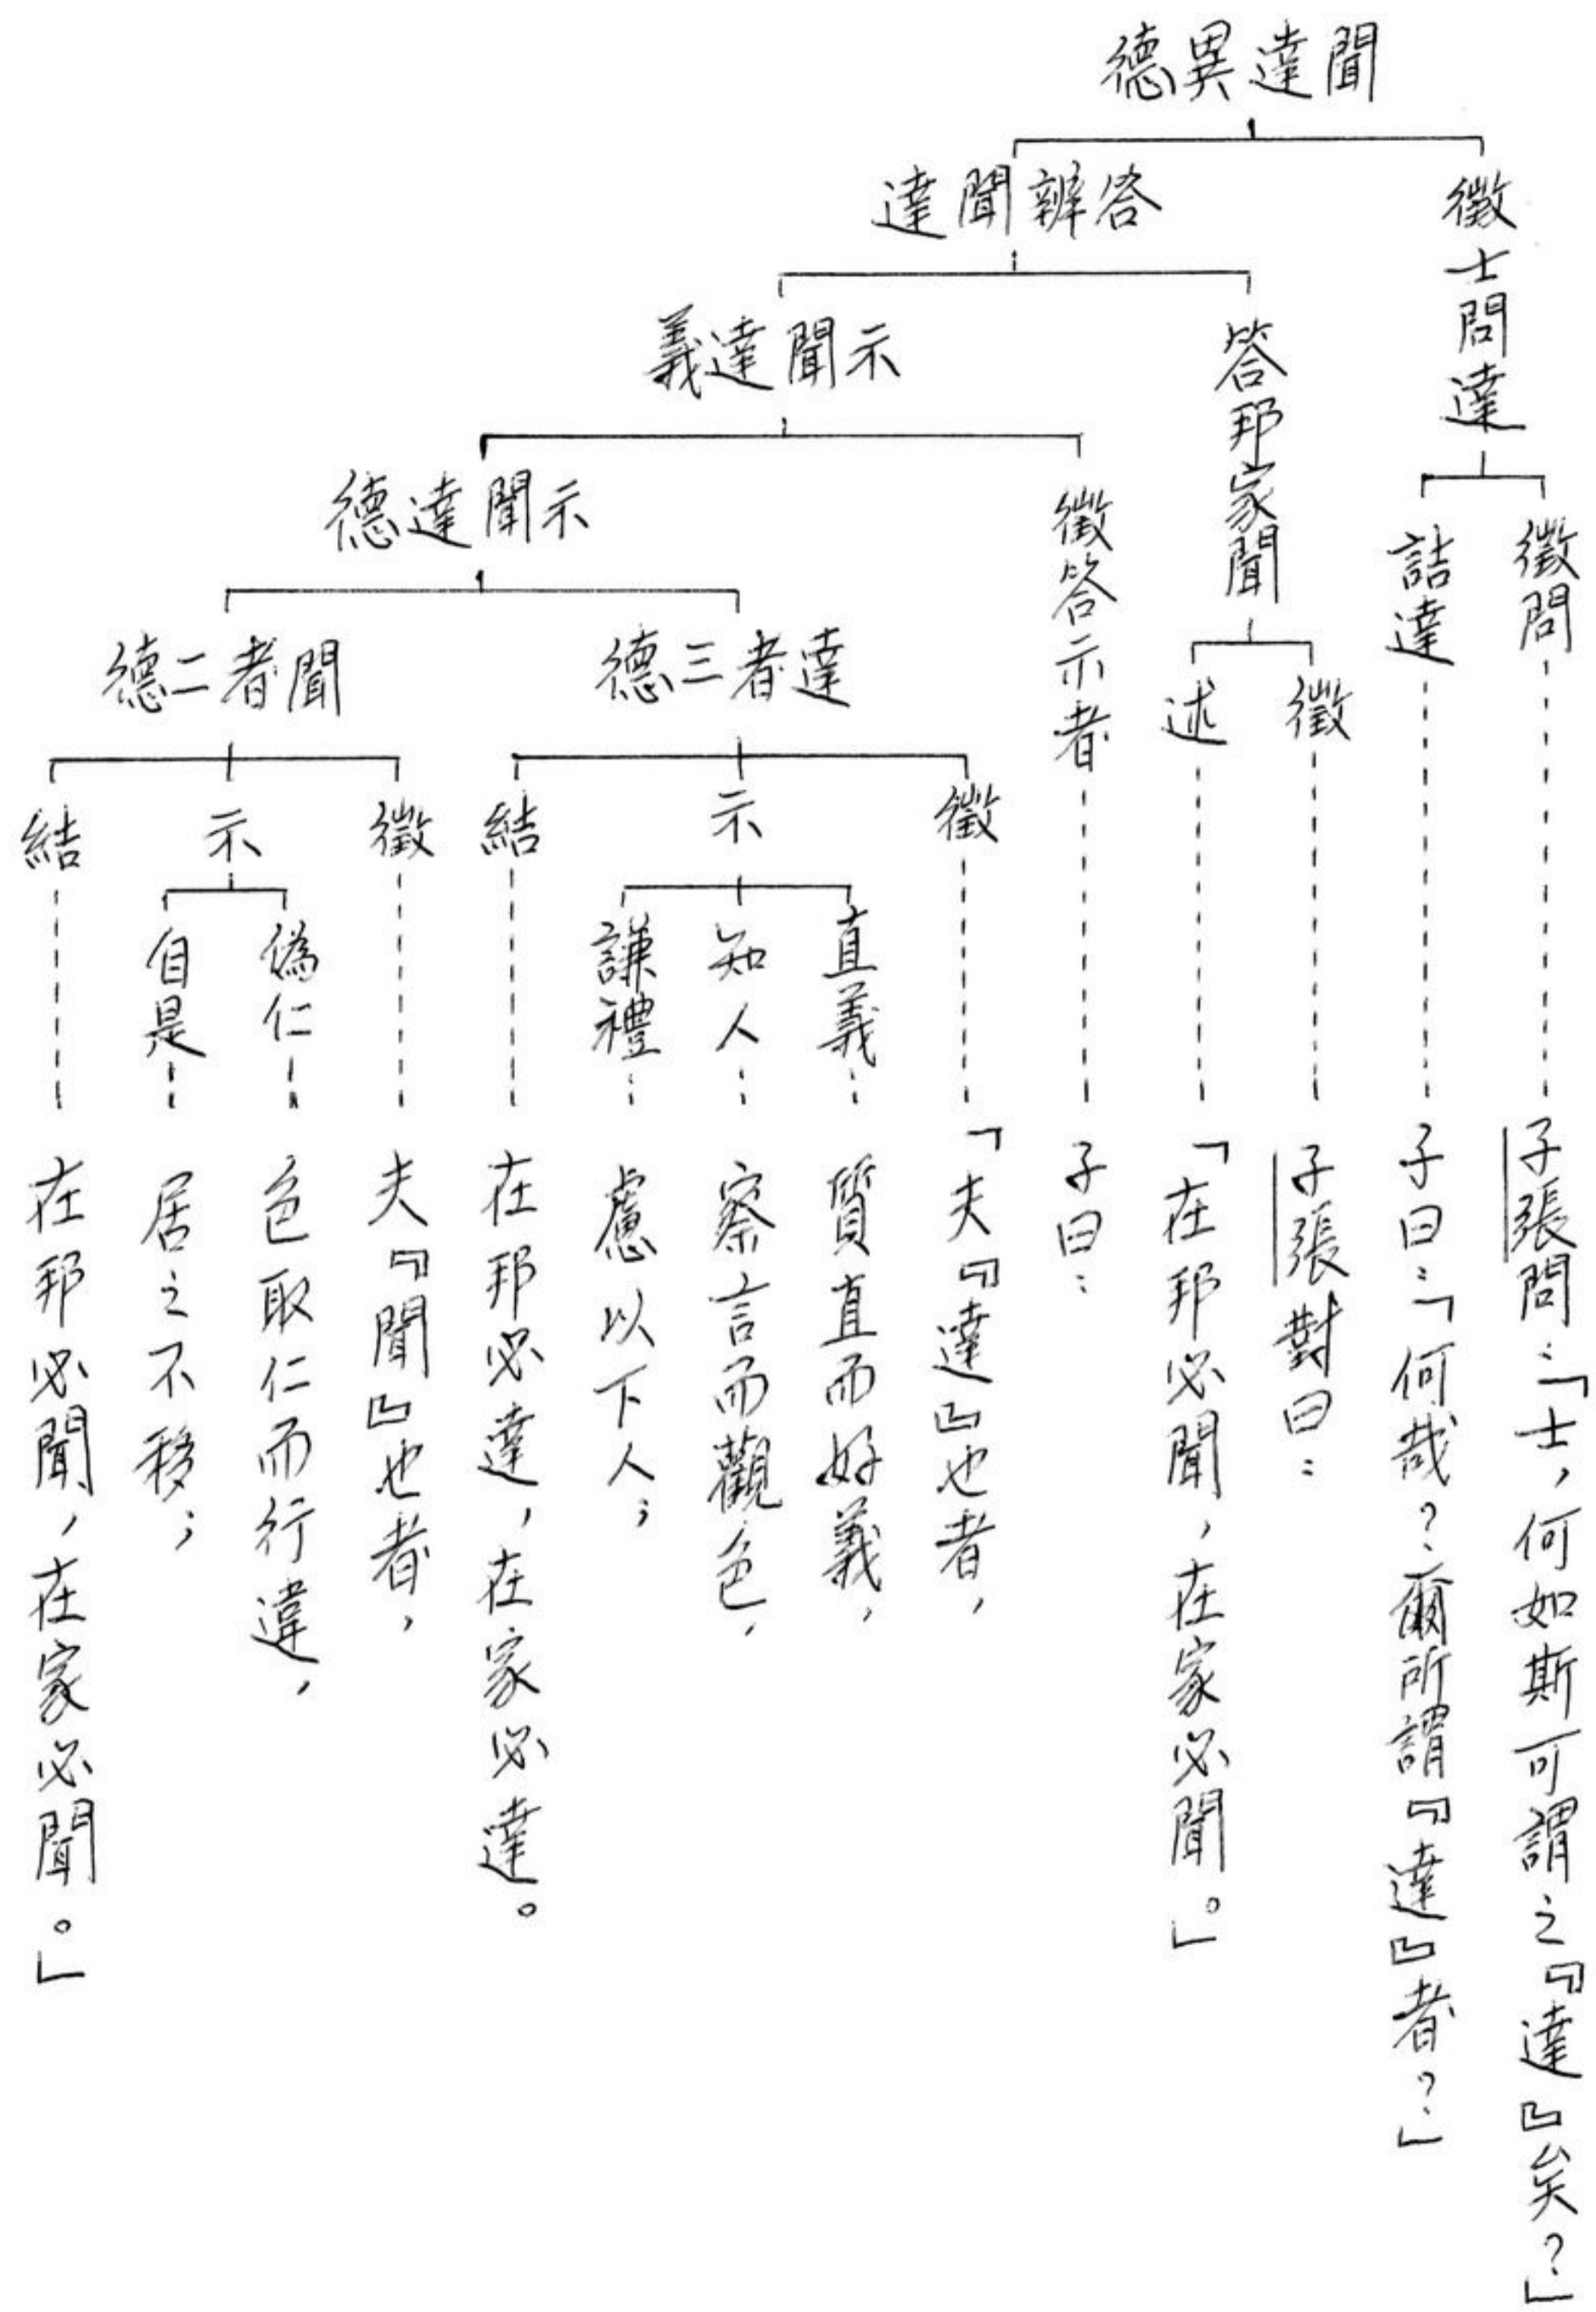 聞達異德
徵士問達
徵問
子張問：「士，何如斯可謂之『達』矣？」
詰達
子曰：「何哉？爾所謂『達』者？」
答辨聞達
答邦家聞
徵
子張對曰：
述
「在邦必聞，在家必聞。」
示聞達義
徵答示者
子曰：
示聞達德
達者三德
徵
「夫『達』也者，
示
直義
質直而好義，
知人
察言而觀色，
謙禮
慮以下人；
結
在邦必達，在家必達。
聞者二德
徵
夫『聞』也者，
示
偽仁
色取仁而行違，
自是
居之不移；
結
在邦必聞，在家必聞。」